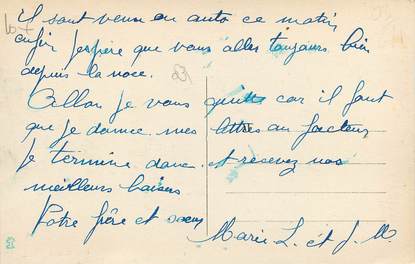 il sont venu en auto ce matin
enfin j'espère que vous alles toujours bien
depuis la noce.
Allon je vous quitte car il faut
que je donne mes lettres au facteur
Je termine donc et recevez nos
meilleurs baisers
Votre frère et soeur
Marie L. et J. M.